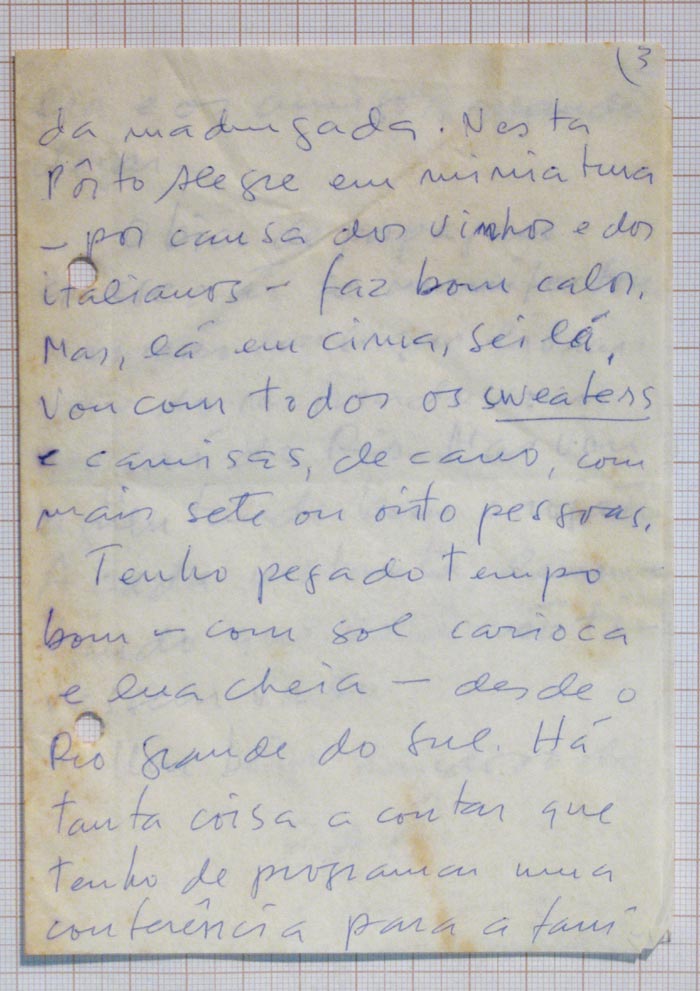 (3
da madrugada. Nesta
Pôrto Alegre em miniatura
- por causa dos vinhos e dos
italianos - faz bom calor.
Mas, lá em cima, sei lá.
Vou com todos os sweaters
e camisas, de carro, com
mais sete ou oito pessoas.
Tenho pegado tempo
bom - com sol carioca
e lua cheia - desde o
Rio Grande do Sul. Há
tanta coisa a contar que
tenho de programar uma
conferência para a famí